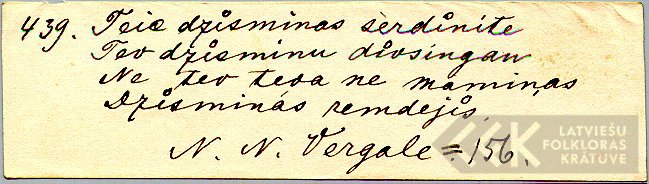 439. Teic dzismiņas sērdinite
Tev dzisminu divsingan
Ne tev teva ne mamiņas
Dzisminás remdejis
N. N. Vergale = 156.
LATVIEŠU
FOLKLORAS
KRĀTUVE